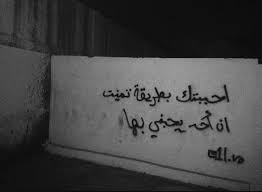 احببتك بطريقة تمنيت
ان أحد يحبني بها